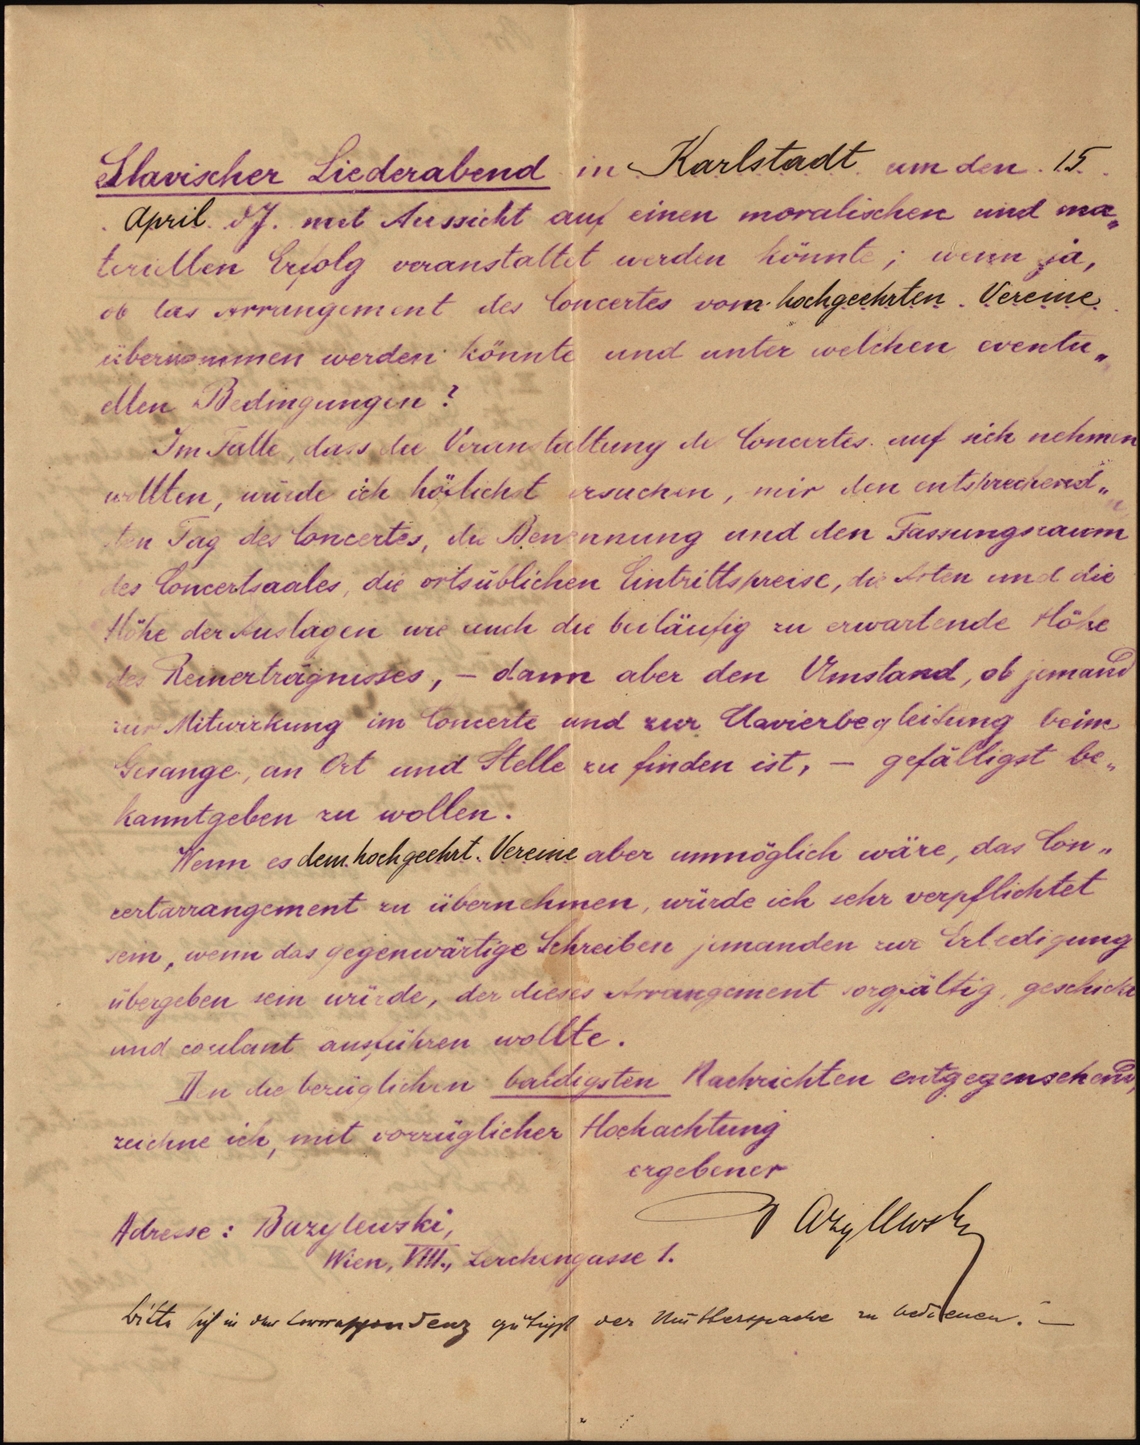 Slavischer Liederabend in Karlstadt um den 15.
April d J. mit Aussicht auf einen moralischen und ma„
teriellen Erfolg veranstaltet werden könnte; wenn ja,
ob das Arrangement des Concertes vom hochgeehrten Vereine
übernommen werden könnte und unter welchen eventu„
ellen Bedingungen?
Im Falle, dass die Veranstaltung des Concertes auf sich nehmen
wollten, würde ich höflichst ersuchen, mir den entsprechend„
den Tag des Concertes, die Benennung und den Fassungsraum
des Concertsaales, die ortsüblichen Eintrittspreise, die Arten und die
Höhe der Auslagen wie auch die beiläufig zu erwartende Höhe
des Reinerträgnisses, – dann aber den Umstand, ob jemand
zur Mitwirkung im Concerte und zur Clavierbegleitung beim
Gesange, an Ort und Stelle zu finden ist, – gefälligst be„
kanntgeben zu wollen.
Wenn es dem hochgeehrt. Vereine aber unmöglich wäre, das Con„
certarrangement zu übernehmen, würde ich sehr verpflichtet
sein, wenn das gegenwärtige Schreiben jemanden zur Erledigung
übergeben sein würde, der dieses Arrangement sorgfältig, geschickt
und coulant ausführen wollte.
Den die bezüglichen baldigsten Nachrichten entgegensehend,
zeichne ich, mit vorzüglicher Hochachtung
ergebener
Bazylewski
Adresse: Bazylewski,
Wien, VIII., Lerchengasse 1.
Bitte sich in der Correspondenz gütigst der Muttersprache zu bedienen. –